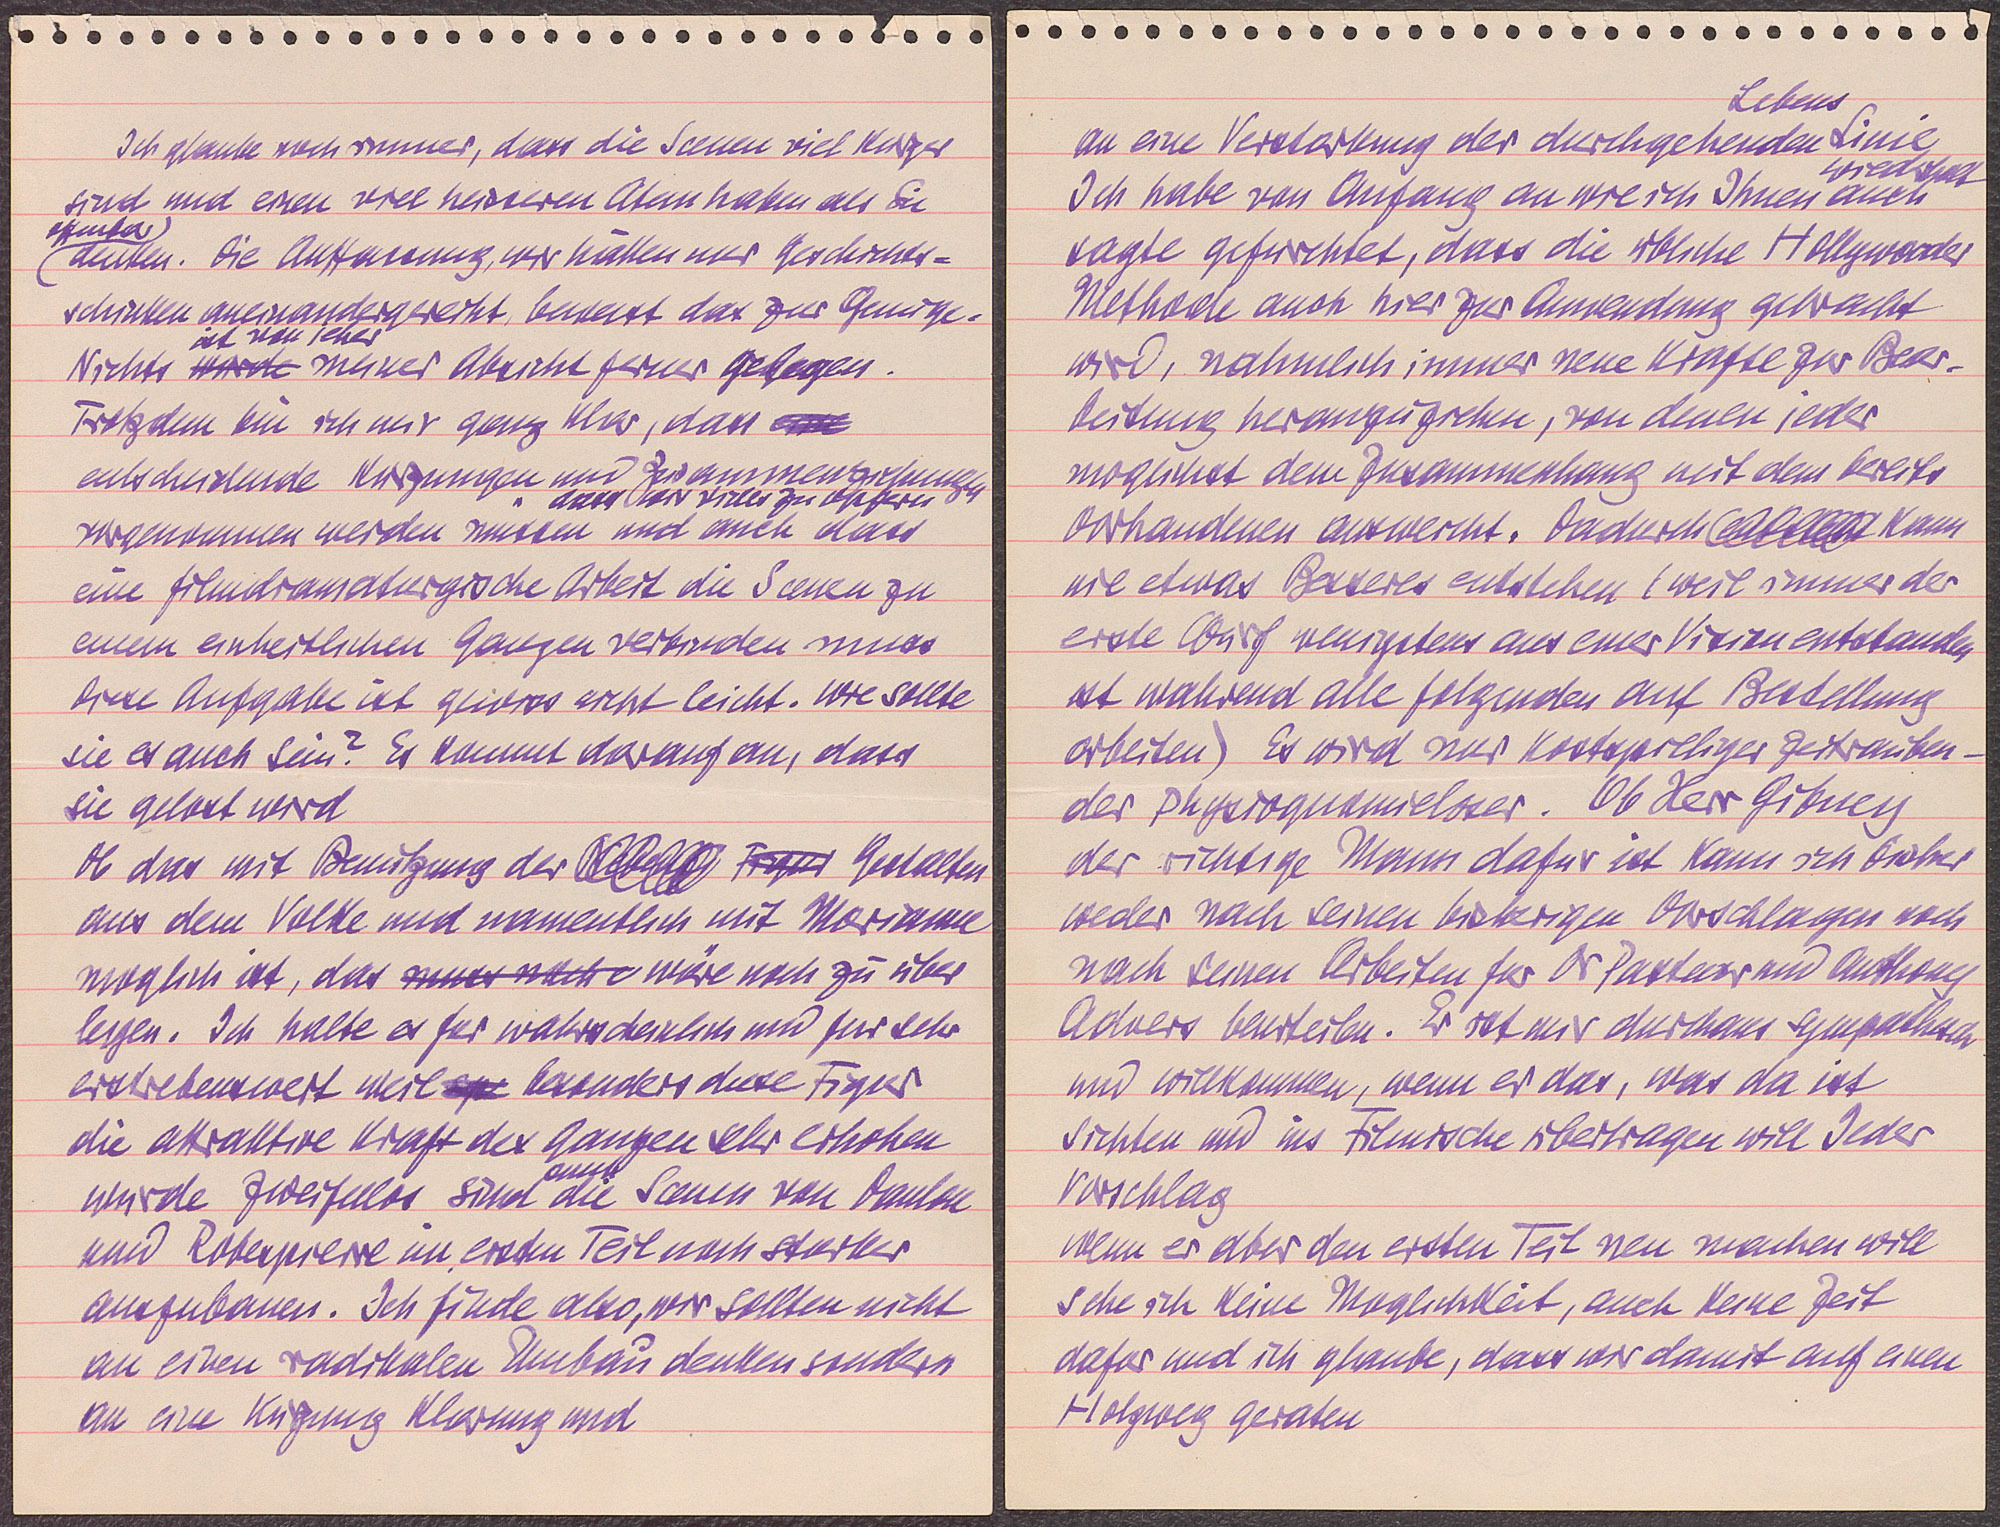 Ich glaube noch immer, dass die Scenen viel kurzer
sind und einen viel heisseren Atem haben als Sie
denken. Die Auffassung, wir hätten nur Geschichts-
schinken aneinandergereiht, beweist das zur Genüge.
ist von jeher
Nichts wurde meiner Absicht ferner gelegen.
Trotzdem bin ich mir ganz klar, dass
entscheidende Kurzungen und Zusammenziehungen
dass wir vieles zu opfern
vorgenommen werden müssen und auch dass
eine filmdramaturgische Arbeit die Scenen zu
einem einheitlichen Ganzen verbinden muss
Diese Aufgabe ist gewiss nicht leicht. Wie sollte
sie es auch sein? Es kommt darauf an, dass
sie gelost wird
Ob das mit Benutzung der Figur Gestalten
aus dem Volke und namentlich mit Marianne
moglich ist, das muss noch wäre noch zu über
legen. Ich halte es fur wahrscheinlich und fur sehr
erstrebenswert weil besonders diese Figur
die attraktive Kraft des Ganzen sehr erhohen
wurde Zweifellos sind die Scenen von Danton
auch
und Robespierre im ersten Teil noch starker
auszubauen. Ich finde also, wir sollten nicht
an einen radikalen Umbau denken sondern
an eine Kurzung Klarung und
Lebens
an eine Verstarkung der durchgehenden Linie
wiederholt
Ich habe von Anfang an wie ich Ihnen auch
sagte gefurchtet, dass die ubliche Hollywooder
Methode auch hier zur Anwendung gebracht
wird, nahmlich immer neue Krafte zur Bear-
beitung heranzuziehen, von denen jeder
moglichst dem Zusammenhang mit dem bereits
Vorhandenen ausweicht. Dadurch kann
nie etwas Besseres entstehen (weil immer der
erste Wurf wenigstens aus einer Vision entstanden
ist wahrend alle folgenden auf Bestellung
arbeiten) Es wird nur kostspieliger zeitrauben-
der physiognomieloser. Ob Herr Gibney
der richtige Mann dafur ist kann ich bisher
weder nach seinen bisherigen Vorschlagen noch
nach seinen Arbeiten fur Dr Pasteur und Anthony
Advers beurteilen. Er ist mir durchaus sympathisch
und willkommen, wenn er das, was da ist
sichten und ins Filmische ubertragen will Jeder
Vorschlag
wenn er aber den ersten Teil neu machen will
sehe ich keine Moglichkeit, auch keine Zeit
dafur und ich glaube, dass wir damit auf einen
Holzweg geraten